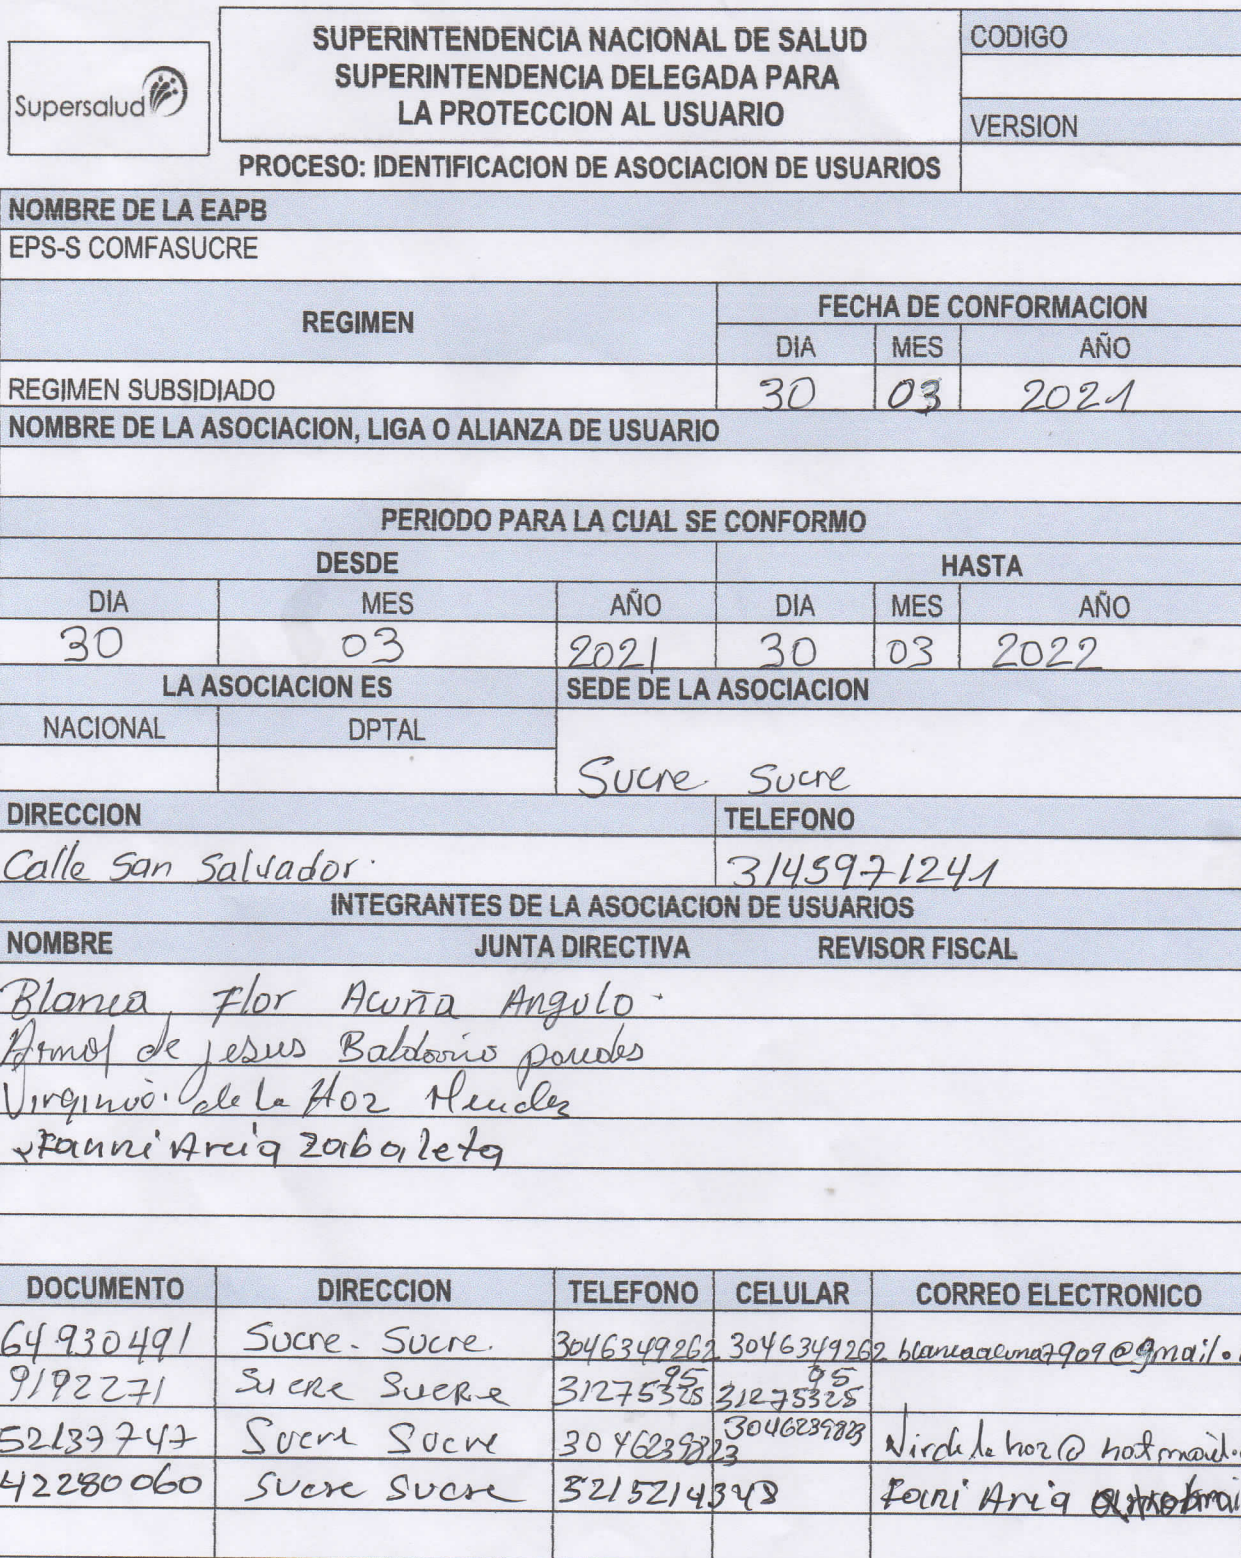 Supersalud
SUPERINTENDENCIA NACIONAL DE SALUD
SUPERINTENDENCIA DELEGADA PARA
LA PROTECCION AL USUARIO
CODIGO
VERSION
PROCESO: IDENTIFICACION DE ASOCIACION DE USUARIOS
NOMBRE DE LA EAPB
EPS-S COMFASUCRE
REGIMEN FECHA DE CONFORMACION
DIA MES AÑO
REGIMEN SUBSIDIADO 30 03 2021
NOMBRE DE LA ASOCIACION, LIGA O ALIANZA DE USUARIO
PERIODO PARA LA CUAL SE CONFORMO
DESDE HASTA
DIA MES AÑO DIA MES AÑO
30 03 2021 30 03 2022
LA ASOCIACION ES SEDE DE LA ASOCIACION
NACIONAL DPTAL
Sucre. Sucre
DIRECCION TELEFONO
Calle San Salvador. 3145971241
INTEGRANTES DE LA ASOCIACION DE USUARIOS
NOMBRE JUNTA DIRECTIVA REVISOR FISCAL
Blanca Flor Acuña Angulo.
de jesus
de la Hoz Mendez
Fanni Arcia Zabaleta
DOCUMENTO DIRECCION TELEFONO CELULAR CORREO ELECTRONICO
64930491 Sucre. Sucre. 3046349262 3046349262 blancaacuna7909@gmail.
9192271 Sucre Sucre
52137747 Sucre Sucre 3046239823 3046239823 Virdelahoz@hotmail.
42280060 Sucre Sucre 3215214348 Fani Aria